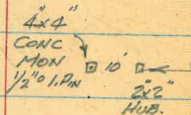 4"x4"
CONC
MON 10'
1/2"⌀ I.PIN
2"x2"
HUB.